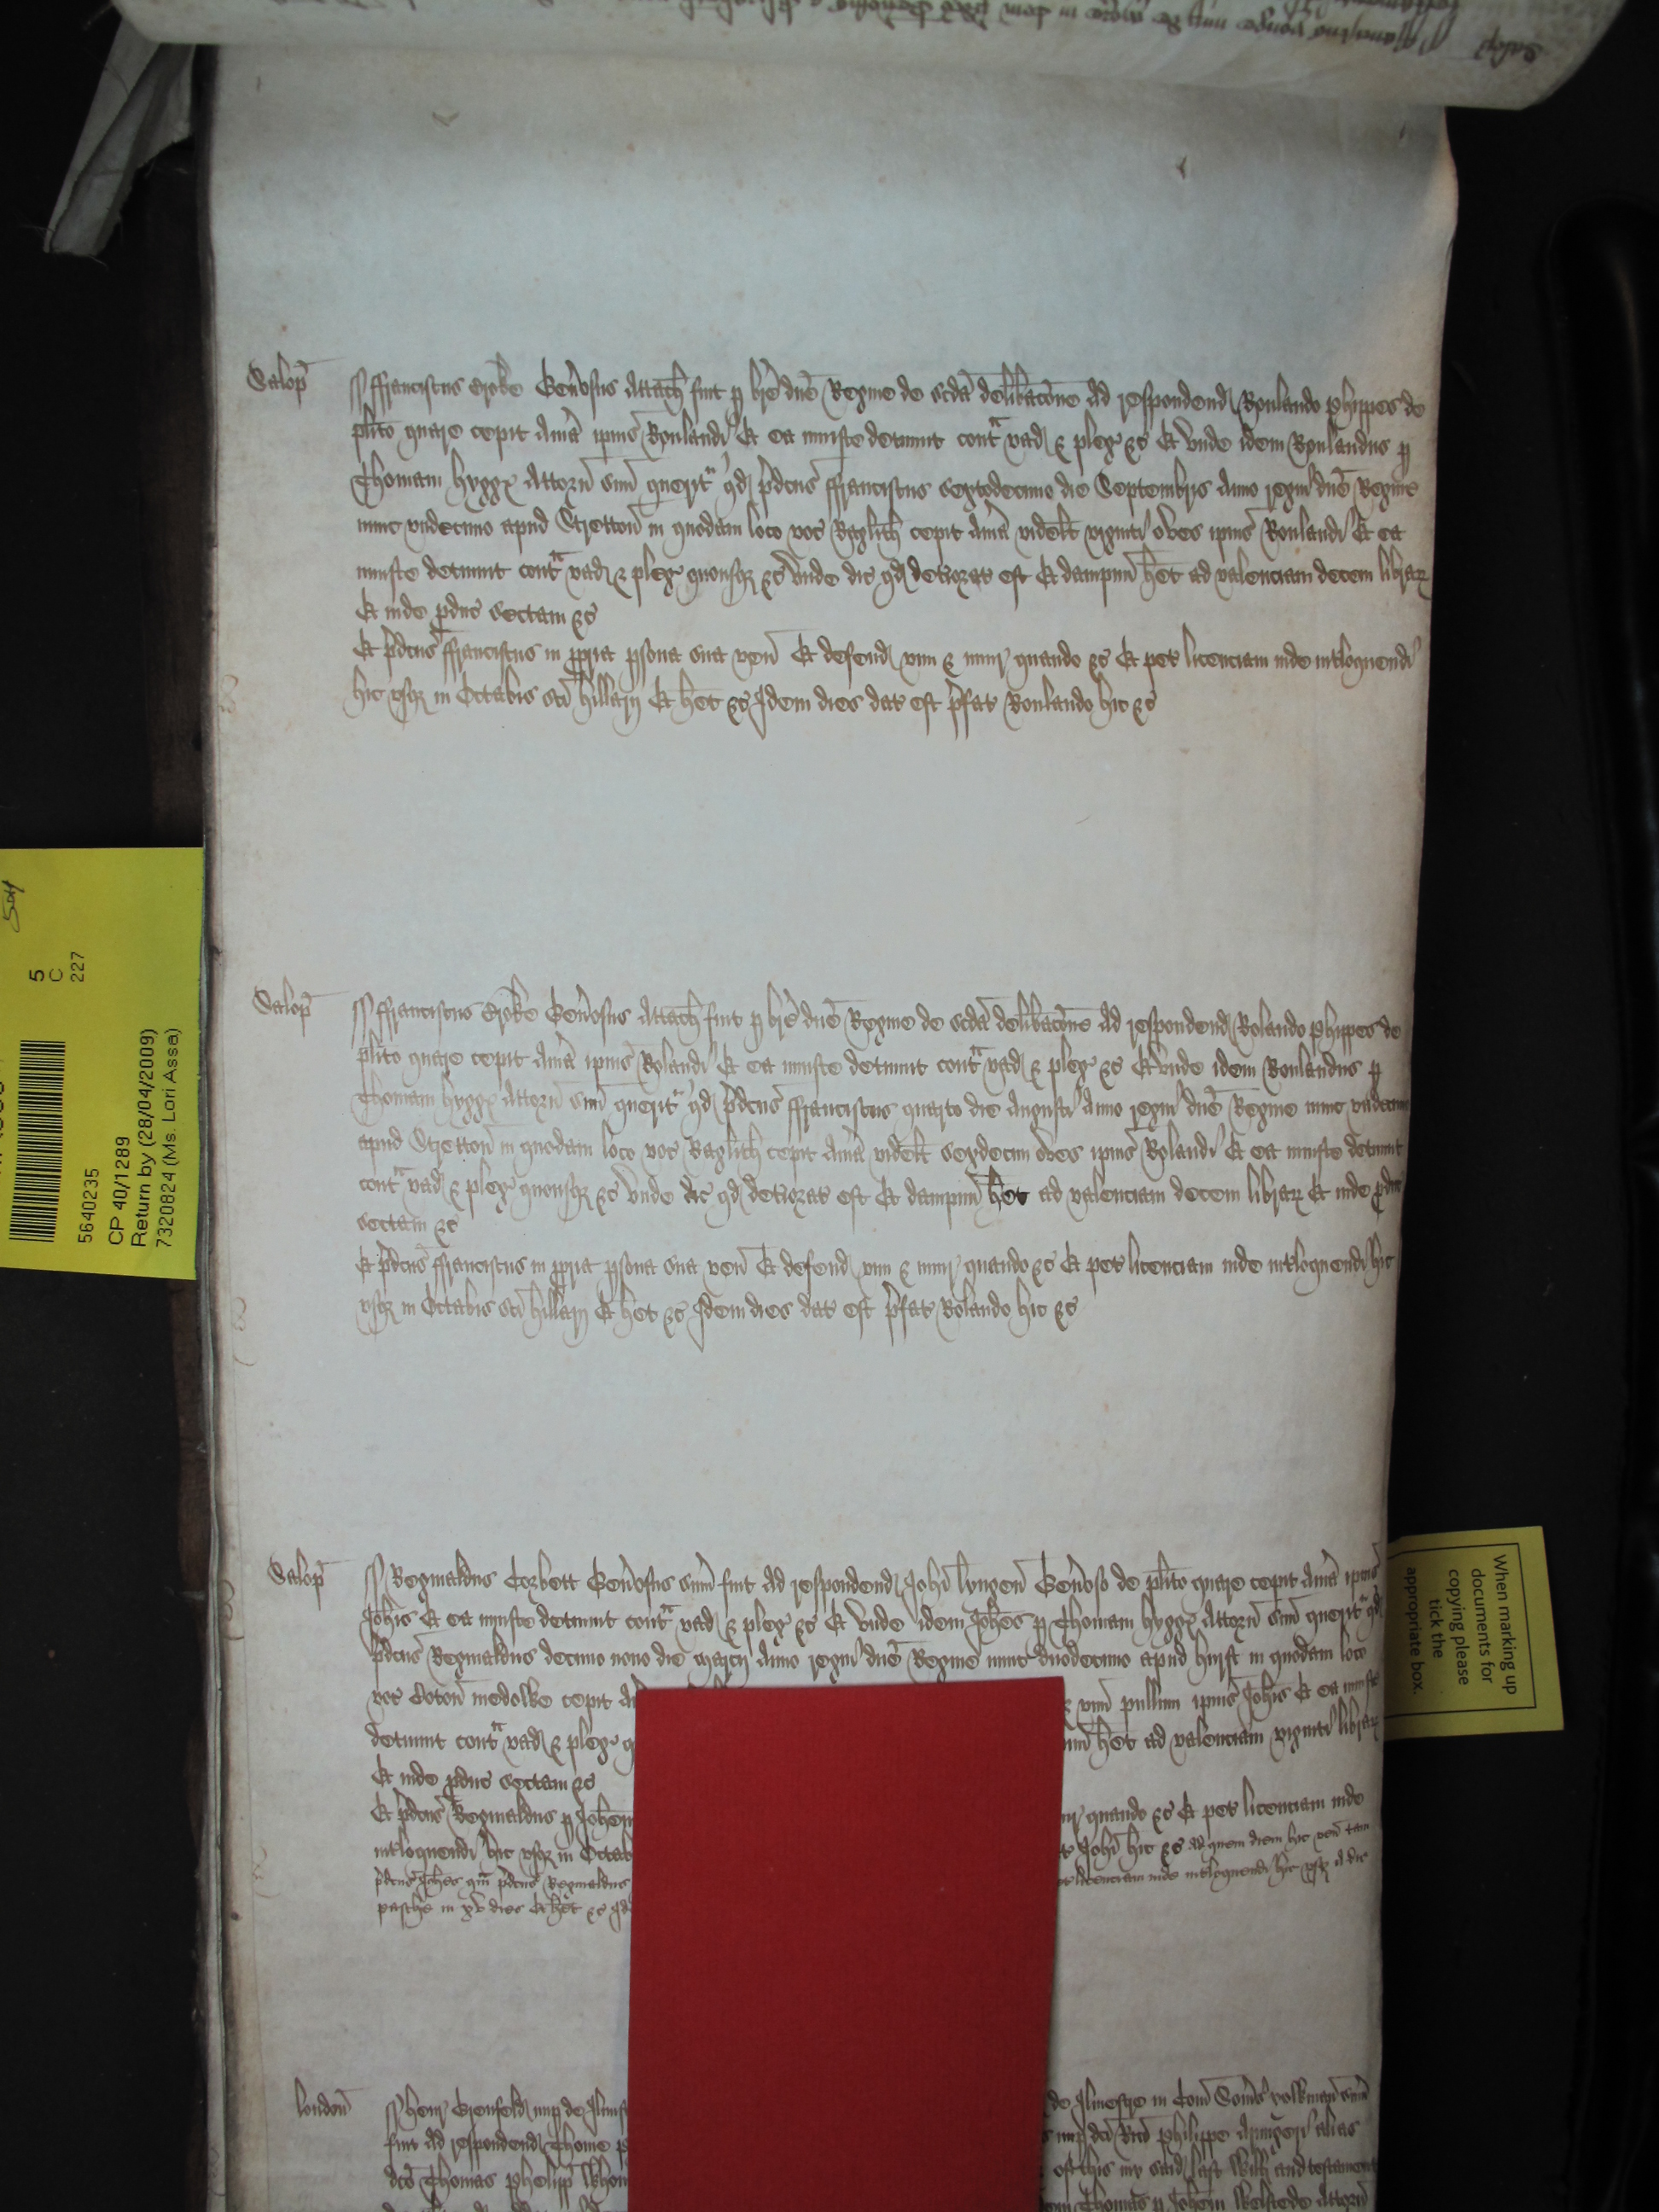 Salop
Salop ffranciscus Gen̄osus Attach fuit p bre dn̄e Regine de scda delib̄acōne Ad respondend Roulando phippes de
plito quare cepit Aūia ipius Roulandi Et ea iniuste detinuit cont vad & pleg &c Et vnde idem Roulandus p
Thomam hyggs Attorn̄ suū querit qd p̄dcus ffranciscus sextodecimo die Septembris Anno regni dn̄e Regine
nunc vndecimo apud Stretton in quodam loco voc Raglith cepit Aūia videlt viginti oves ipius Roulandi Et ea
iniuste detinuit cont vad & pleg quousq &c vnde dic qd deteriorat est Et dampnū het ad valenciam decem librar
Et inde p̄duc sectam &c
Et p̄dcus ffranciscus in ppria psona sua ven̄ Et defend vim & iniur quando &c Et pet licenciam inde int̄loquendi
hic vsq in Octabis sci hillarij Et het &c Idem dies dat est p̄fat Roulando hic &c
Salop ffranciscus Gen̄osus Attach fuit p bre dn̄e Regine de scda delib̄acōne Ad respondend Rolando phippes de
plito quare cepit Aūia ipius Rolandi Et ea iniuste detinuit cont vad & pleg &c Et vnde idem Roulandus p
Thomam hyggs Attorn̄ suū querit qd p̄dcus ffranciscus quarto die Augusti Anno regni dn̄e Regine nunc vndecimo
apud Stretton in quodam loco voc Raglith cepit Aūia videlt sexdecim oves ipius Rolandi Et ea iniuste detinuit
cont vad & pleg quousq &c vnde dic qd deteriorat est Et dampnū het ad valenciam decem librar Et inde p̄duc
sectam &c
Et p̄dcus ffranciscus in ppria psona sua ven̄ Et defend vim & iniur quando &c Et pet licenciam inde int̄loquendi hic
vsq in Octabis sci hillarij Et het &c Idem dies dat est p̄fat Rolando hic &c
Salop Reginaldus Corbett Gen̄osus sum̄ fuit Ad respondend Johi lyngen Gen̄oso de plito quare cepit Aūia ipius
Johis Et ea iniuste detinuit cont vad & pleg &c Et vnde idem Johes p Thomam hyggs Attorn̄ suū querit qd
p̄dcus Reginaldus decimo nono die marcij Anno regni dn̄e Regine nunc duodecimo apud hurst in quodam loco
voc cepit & vnū pullum ipius Johis Et ea iniuste
detinuit cont vad & pleg het ad valenciam viginti librar
Et inde p̄duc sectam &c
Et p̄dcus Reginaldus p Johem quando &c Et pet licenciam inde
int̄loquendi hic vsq in Octab Johi hic &c ad quem diem hic ven̄ tam
p̄dcus Johes qm p̄dcus Reginaldus licenciam inde int̄loquendi hic vsq a die
pasche in xv dies Et het &c
london henr Grenfeld nup de de in Com Som̄s sum̄
fuit Ad respondend Thome nup dci Ricd philippe Armigeri alias
dcō Thomas phelipp of this my said last will and testament
Thomas p Johem Attorn̄
5
C
227
5640235
CP 40/1289
Return by (28/04/2009)
7320824 (Ms. Lori Assa)
When marking up
documents for
copying please
tick the
appropriate box.